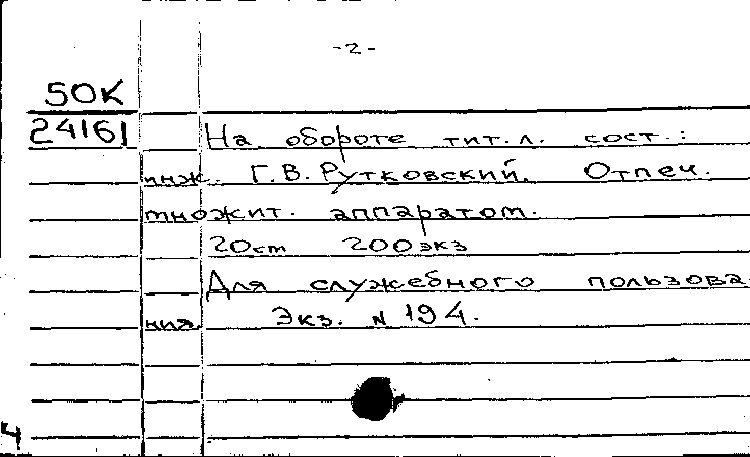 -2-
50К
24161 На обороте тит. л. сост.:
инж. Г.В. Рутковский. Отпеч.
множит. аппаратом.
20ст 200экз
Для служебного пользова
ния. Экз. N 194.
4